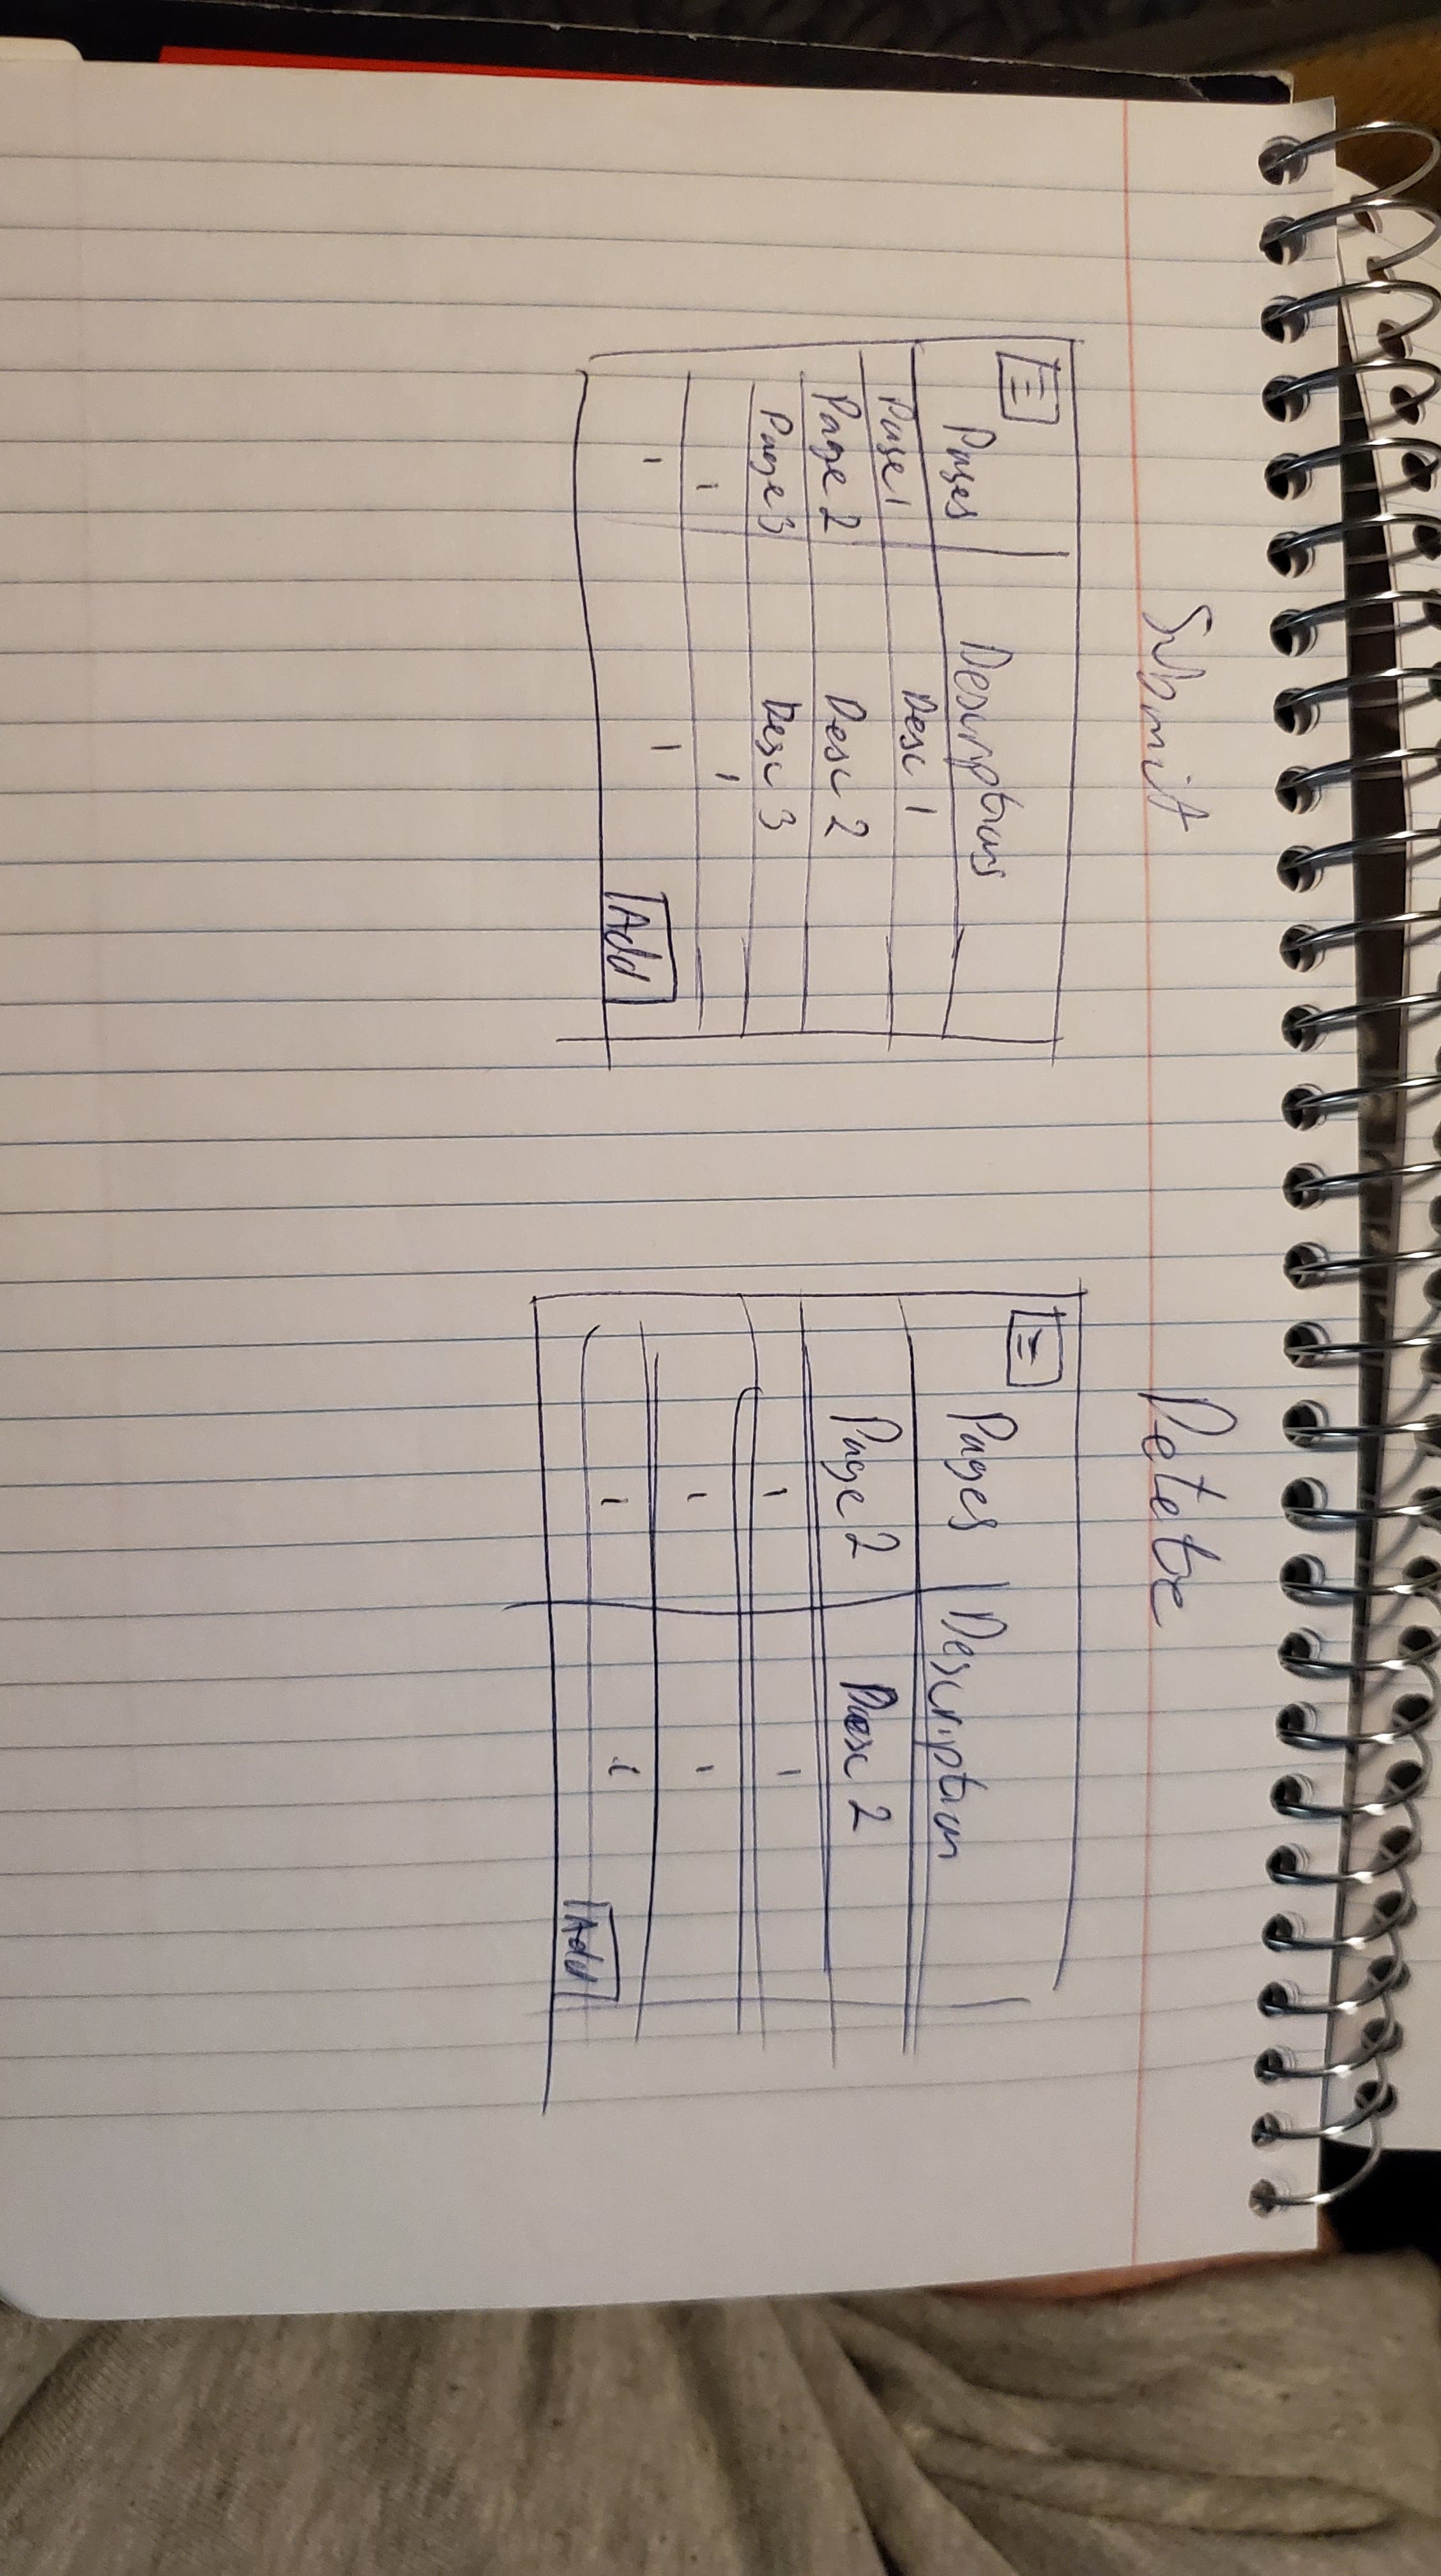 Submit
Pages Descriptions
Page 1 Desc 1
Page 2 Desc 2
Page 3 Desc 3
Add
Delete
Pages Description
Page 2 Desc 2
Add